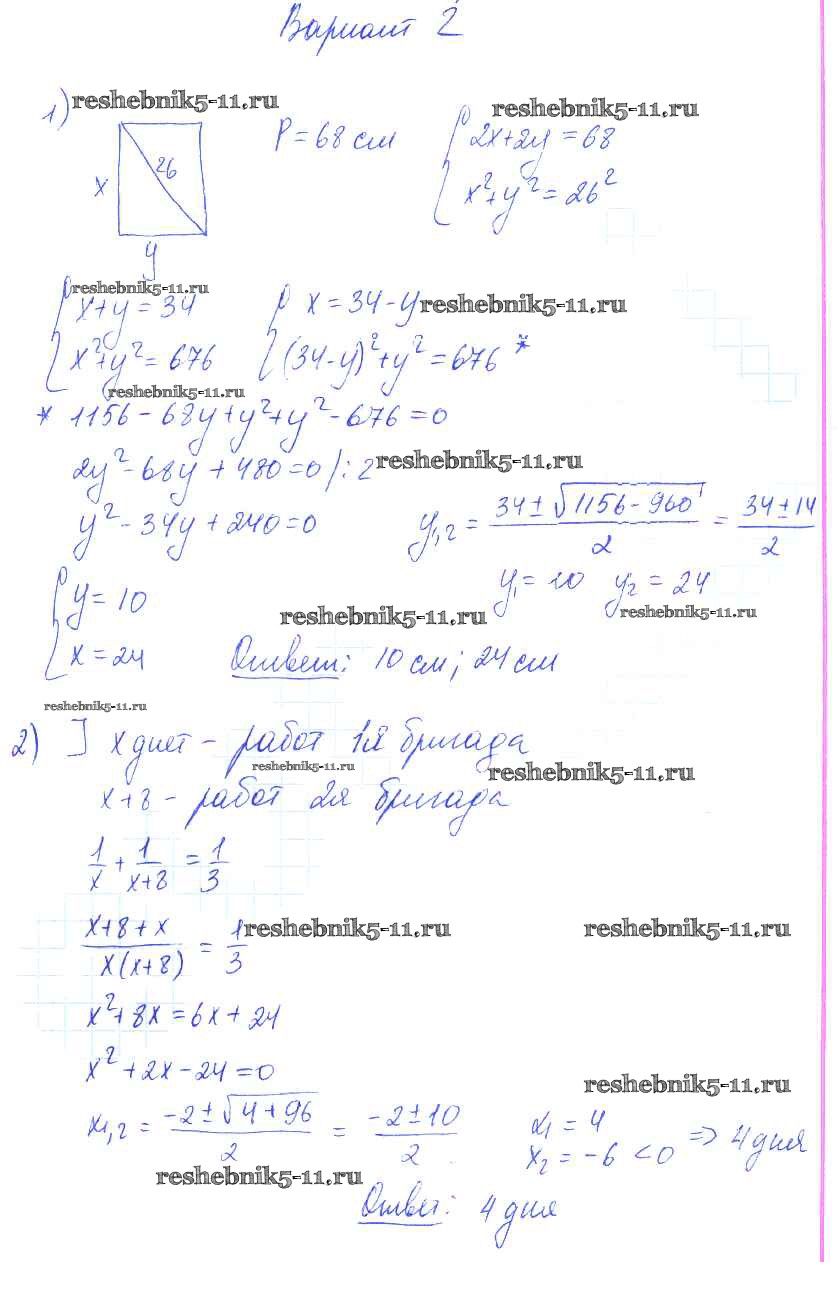 Вариант 2
reshebnik5-11.ru
reshebnik5-11.ru
1)
x
26
y
P = 68 см
{ 2x+2y = 68
x²+y² = 26²
reshebnik5-11.ru
{ x+y = 34
x²+y² = 676
{ x = 34-y
reshebnik5-11.ru
(34-y)²+y² = 676 *
reshebnik5-11.ru
* 1156 - 68y + y² + y² - 676 = 0
2y² - 68y + 480 = 0 /:2
reshebnik5-11.ru
y² - 34y + 240 = 0
y1,2 = (34 ± √(1156 - 960))/2 = (34 ± 14)/2
y1 = 10 y2 = 24
reshebnik5-11.ru
{ y = 10
x = 24
reshebnik5-11.ru
Ответ: 10 см; 24 см
reshebnik5-11.ru
2) ] x дней - работ 1я бригада
reshebnik5-11.ru
reshebnik5-11.ru
x+8 - работ 2я бригада
1/x + 1/(x+8) = 1/3
(x+8+x)/(x(x+8)) = 1/3
reshebnik5-11.ru
reshebnik5-11.ru
x² + 8x = 6x + 24
x² + 2x - 24 = 0
reshebnik5-11.ru
x1,2 = (-2 ± √(4+96))/2 = (-2 ± 10)/2
x1 = 4
x2 = -6 < 0 => 4 дня
reshebnik5-11.ru
Ответ: 4 дня